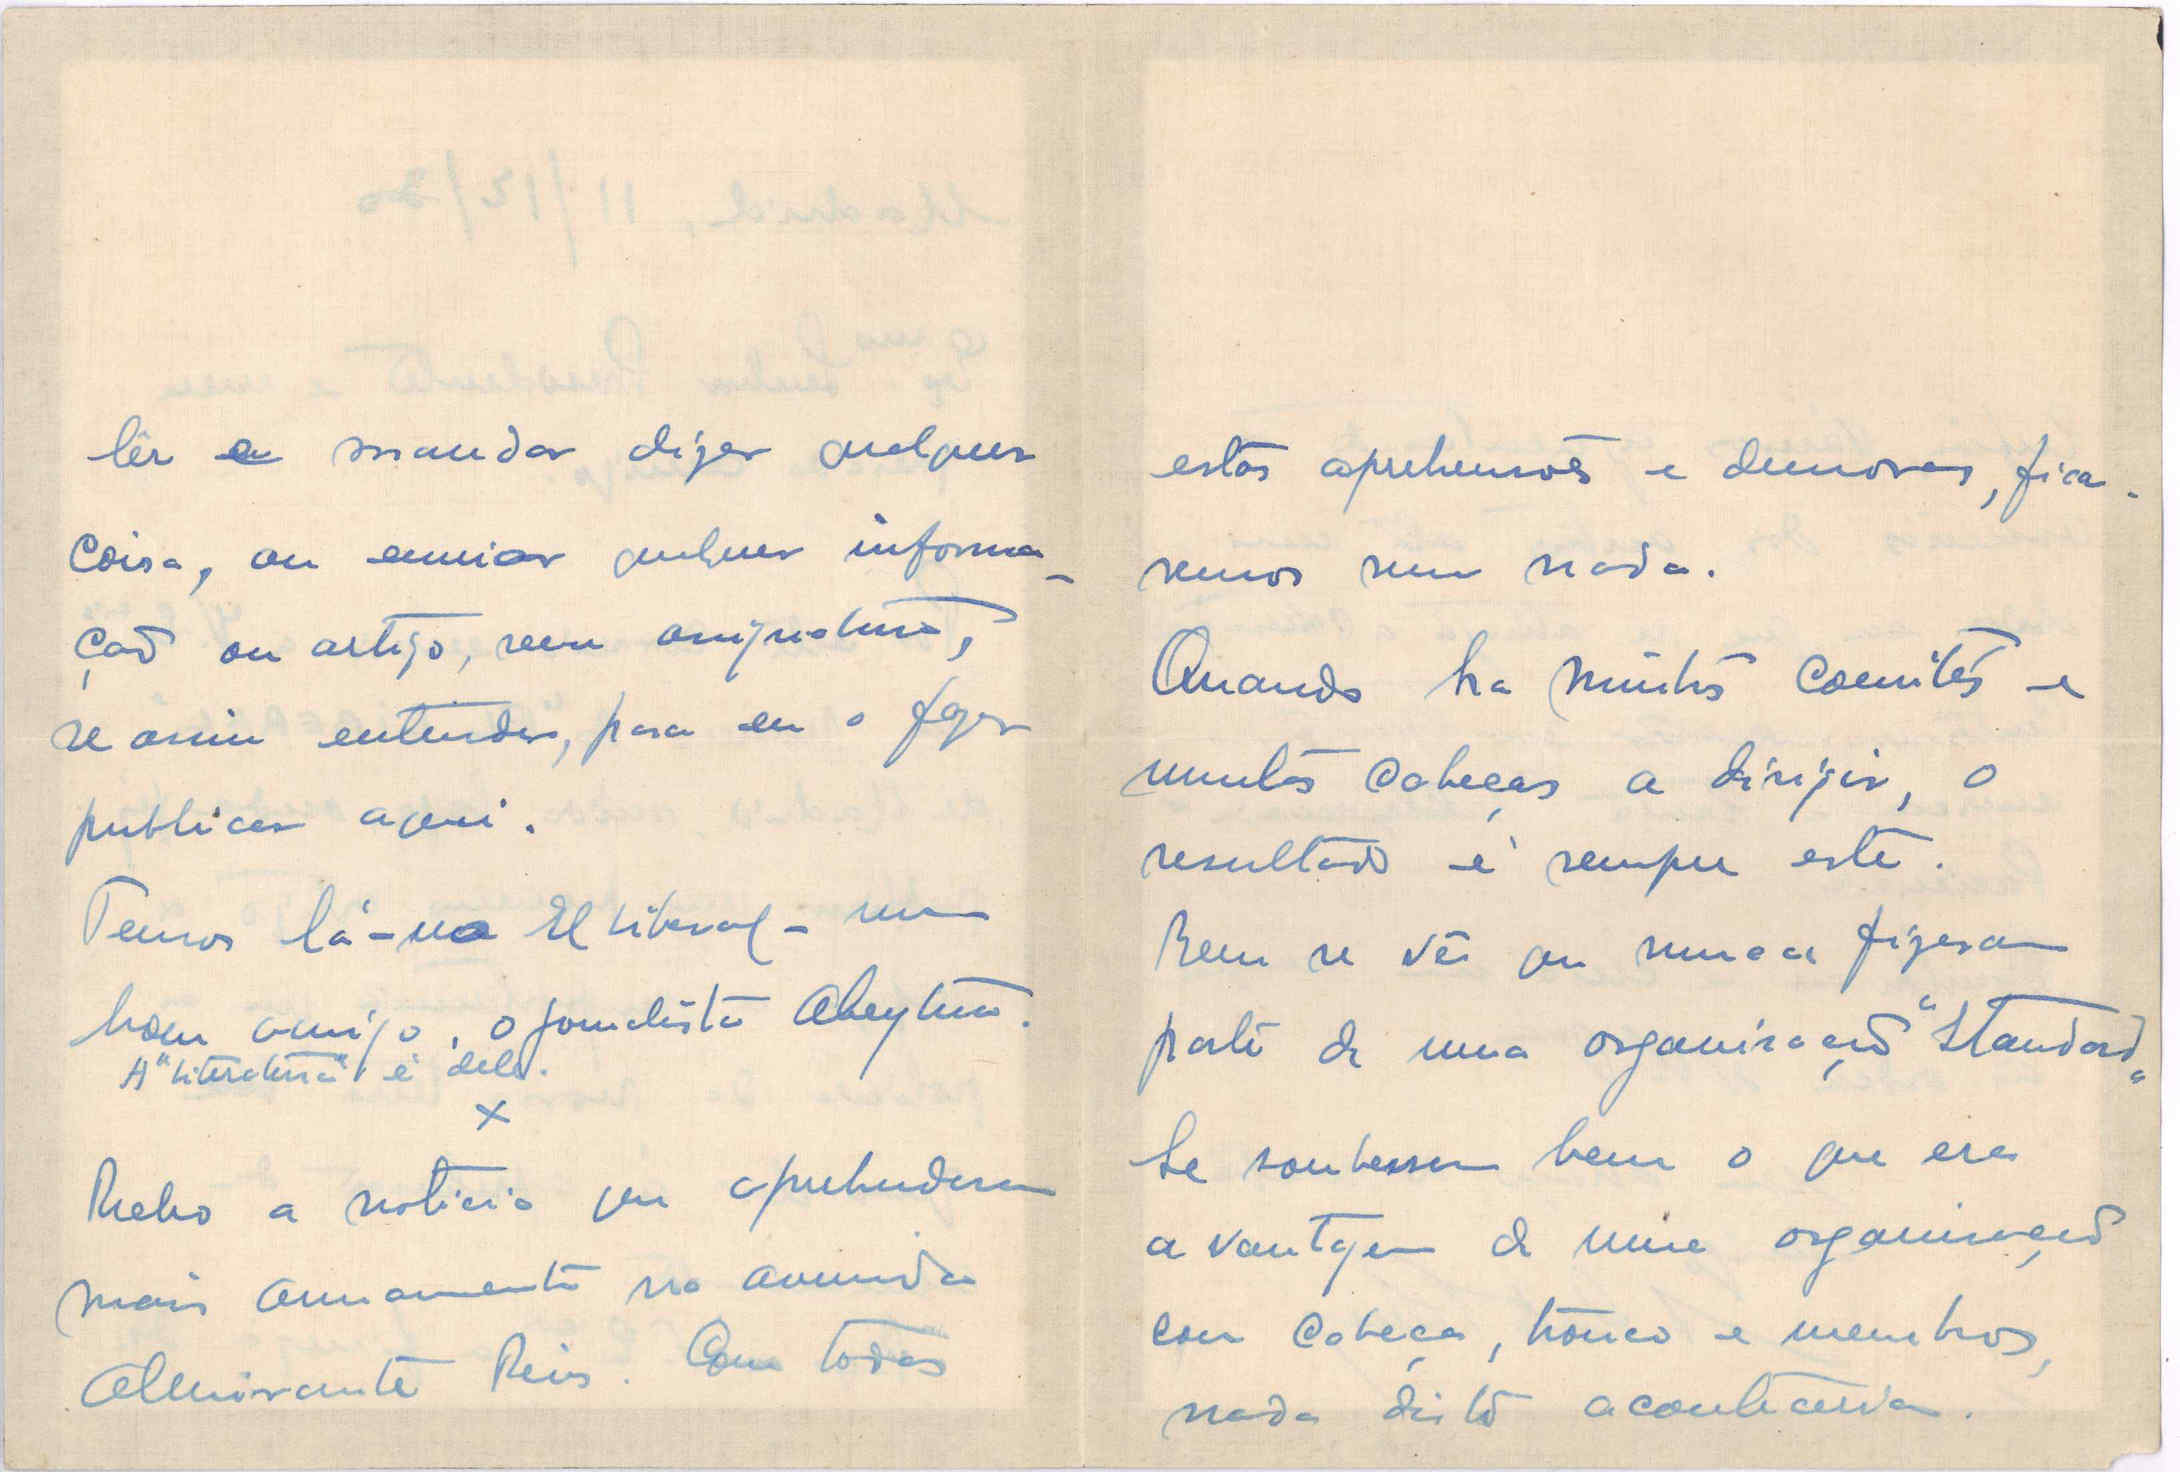 lêr e mandar dizer qualquer
coisa, ou enviar qualquer informa-
ção ou artigo, sem assignatura,
se assim entender, para eu o fazer
publicar aqui.
Temos lá - no El Liberal - um
bom amigo, o jornalista Abeytua.
A "Literatura" é dele.
x
Recebo a noticia que aprehenderam
mais armamento na avenida
Almirante Reis. Com todas
estas aprehensões e demoras, fica-
remos sem nada.
Quando ha muitos comités e
muitas cabeças a dirigir, o
resultado é sempre este.
Bem se vê que nunca fizeram
parte de uma organisação "Standard"
Se soubessem bem o que era
a vantagem de uma organisação
com cabeça, tronco e membros,
nada disto aconteceria.